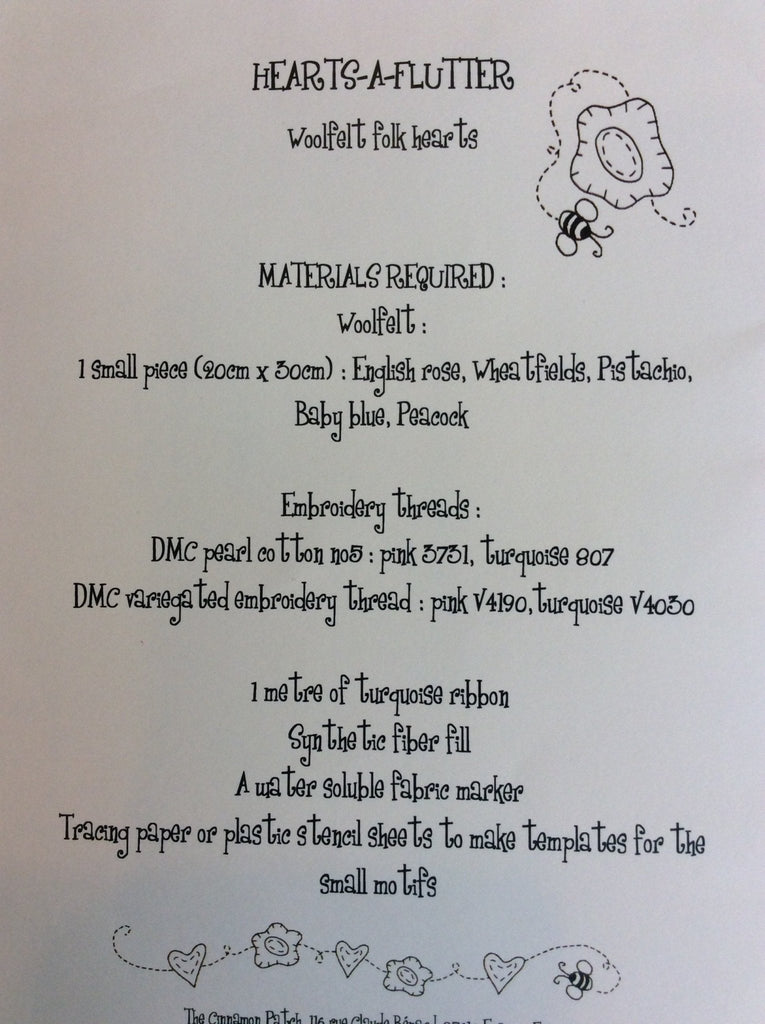 HEARTS-A-FLUTTER
Woolfelt folk hearts
MATERIALS REQUIRED :
Woolfelt :
1 small piece (20cm x 30cm) : English rose, Wheatfields, Pistachio,
Baby blue, Peacock
Embroidery threads :
DMC pearl cotton no5 : pink 3731, turquoise 807
DMC variegated embroidery thread : pink V4190, turquoise V4030
1 metre of turquoise ribbon
Synthetic fiber fill
A water soluble fabric marker
Tracing paper or plastic stencil sheets to make templates for the
small motifs
The Cinnamon Patch, 116 rue Claude